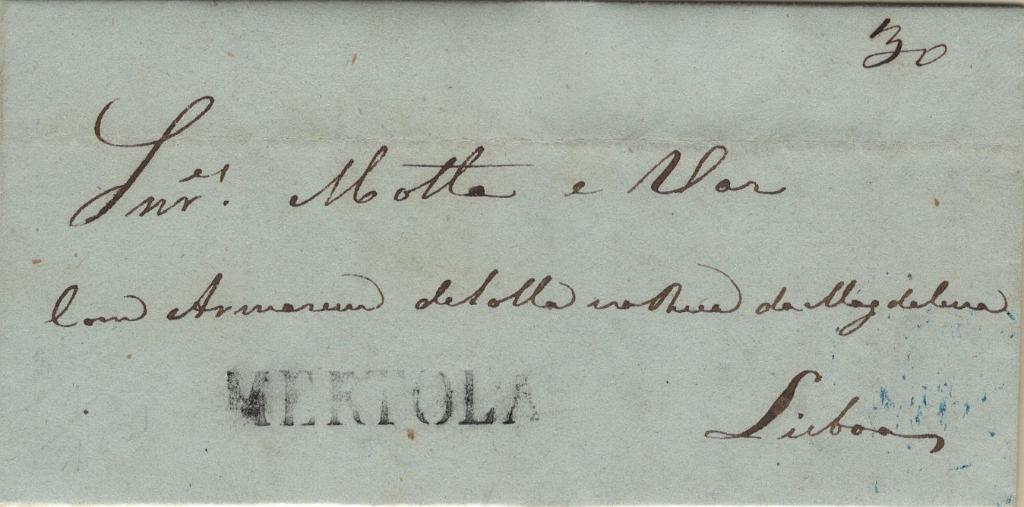 30
Snr.es Motta e Vaz
Com Armazem de Solla na Rua da Magdalena
MERTOLA
Lisboa